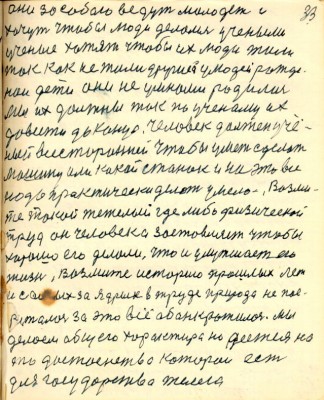 они за собою ведут молодеж и 33
хочут чтобы люди делалися учеными
ученые хотят чтобы их люди жили
так как не жили другие у людей рожде-
ном дети они не умными родилися
мы их должны так по ученому их
довести до конца, Человек должен учё-
ный всесторонней чтобы умет сделат
машину или какой станок и на это все
надо практически делат умело-, Возми-
те такой тежелый где либо физической
труд он человека заставляет чтобы
хорошо его делали, что и улутшает его
жизн, Возмите историю прошлых лет
и своих за ядрик в труде природа не пое-
за это всё абанкротился. мы
делаем общего характира но деется на
это достоенство которои ест
для государства телега